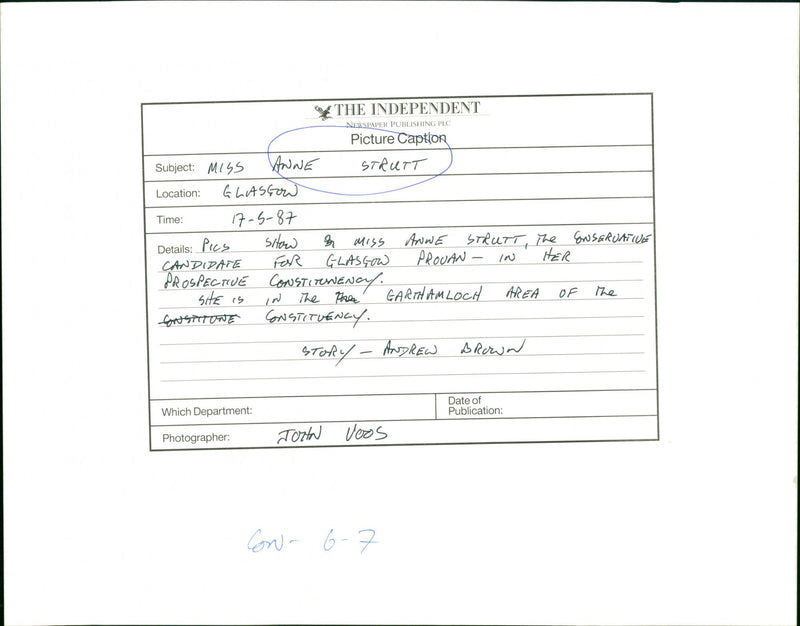 THE INDEPENDENT
NEWSPAPER PUBLISHING PLC
Picture Caption
Subject: MISS ANNE STRUTT
Location: GLASGOW
Time: 17-5-87
Details: PICS SHOW MISS ANNE STRUTT, THE CONSERVATIVE
CANDIDATE FOR GLASGOW PROVAN - IN HER
PROSPECTIVE CONSTITUNENCY.
SHE IS IN THE GARTHAMLOCH AREA OF THE
CONSTITUENCY.
STORY - ANDREW BROWN
Which Department:
Date of
Publication:
Photographer: JOHN VOOS
CON- 6-7